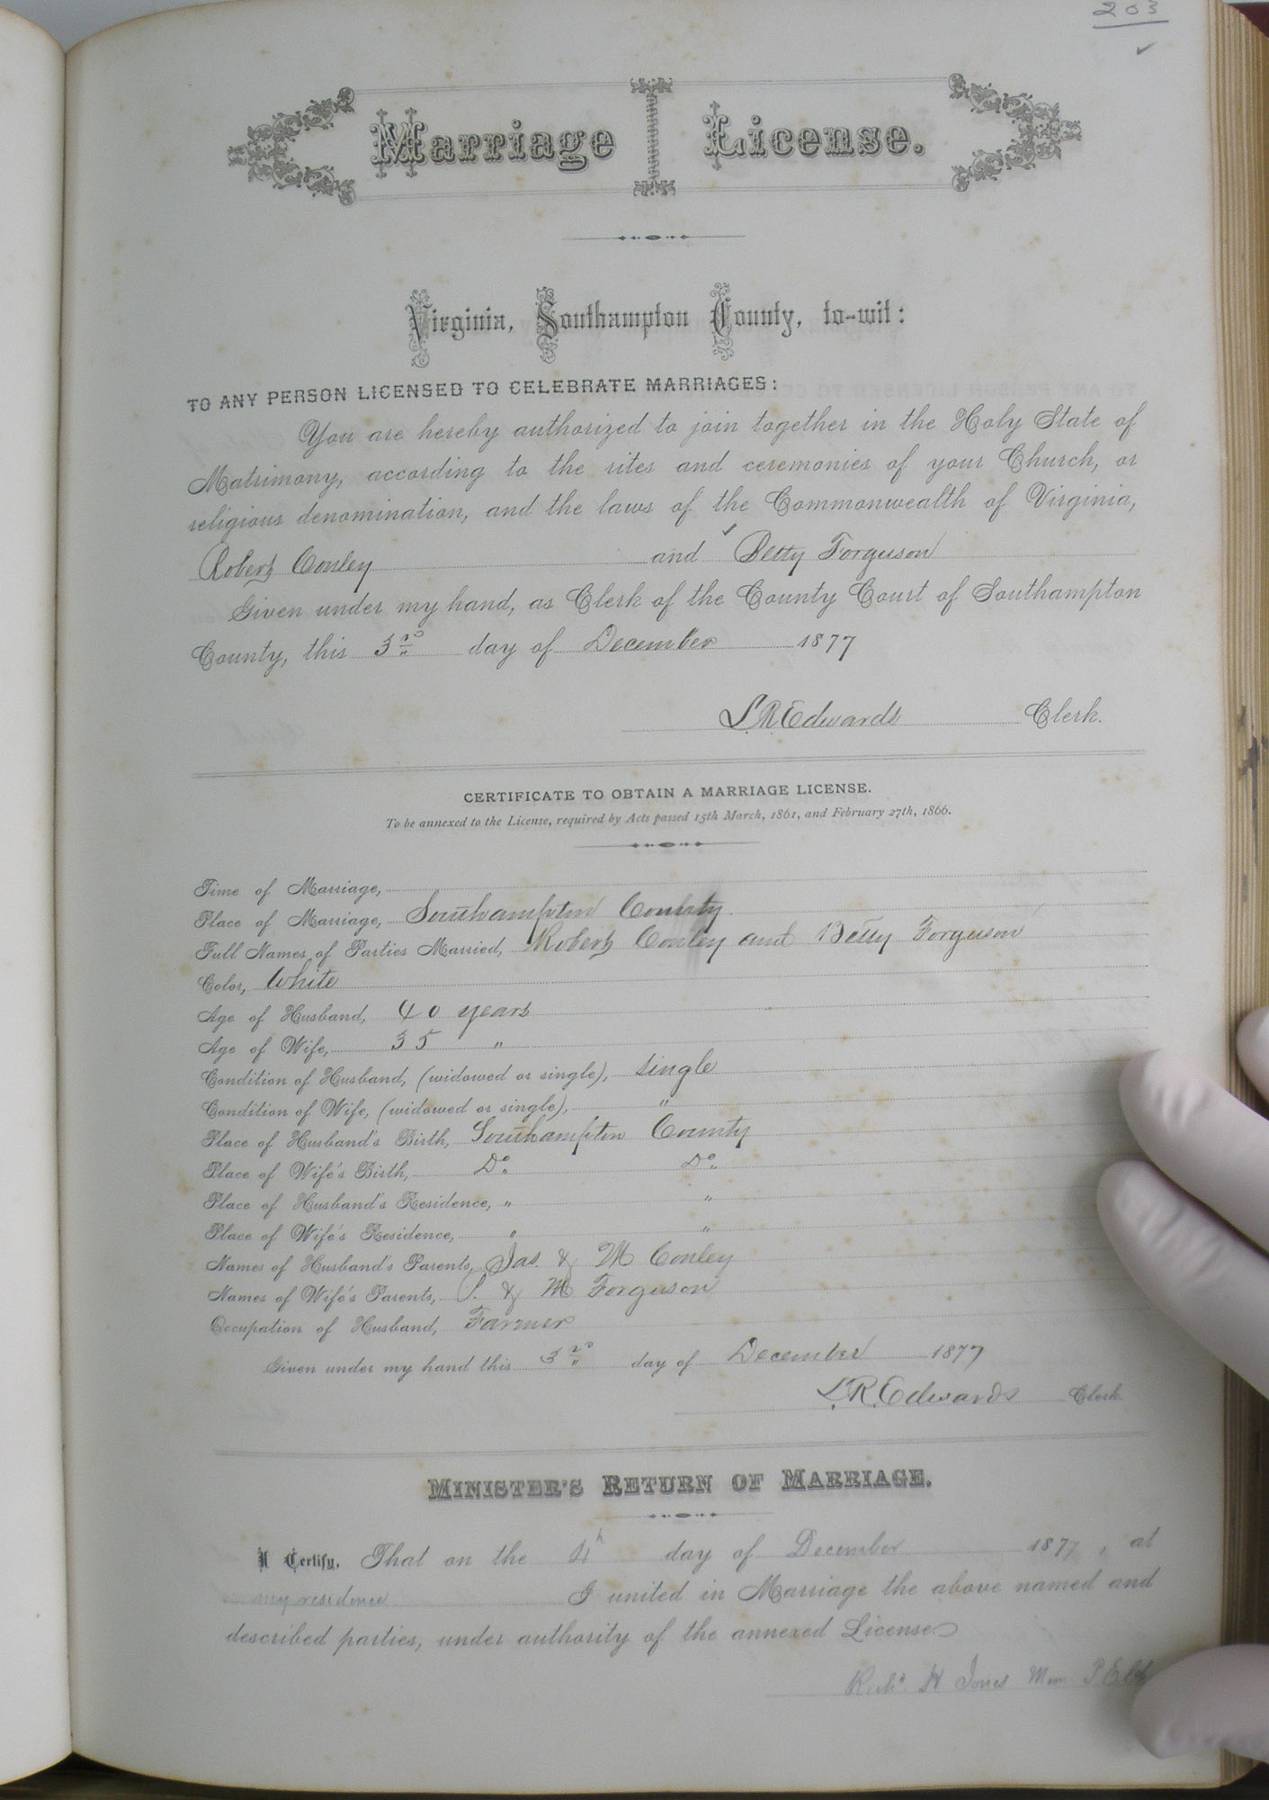 203
Marriage License.
Virginia, Southampton County, to-wit:
TO ANY PERSON LICENSED TO CELEBRATE MARRIAGES:
You are hereby authorized to join together in the Holy State of
Matrimony, according to the rites and ceremonies of your Church, or
religious denomination, and the laws of the Commonwealth of Virginia,
Robert Conley and Betty Forguson
Given under my hand, as Clerk of the County Court of Southampton
County, this 3rd day of December 1877
L.R. Edwards Clerk.
CERTIFICATE TO OBTAIN A MARRIAGE LICENSE.
To be annexed to the License, required by Acts passed 15th March, 1861, and February 27th, 1866.
Time of Marriage,
Place of Marriage, Southampton County
Full Names of Parties Married, Robert Conley and Betty Forguson
Color, White
Age of Husband, 40 years
Age of Wife, 35 "
Condition of Husband, (widowed or single), single
Condition of Wife, (widowed or single), "
Place of Husband's Birth, Southampton County
Place of Wife's Birth, Do Do
Place of Husband's Residence, " "
Place of Wife's Residence, " "
Names of Husband's Parents, Jas. & M Conley
Names of Wife's Parents, & M Forguson
Occupation of Husband, Farmer
Given under my hand this 3rd day of December 1877
L.R. Edwards Clerk
MINISTER'S RETURN OF MARRIAGE.
I Certify, That on the 4th day of December 1877, at
my residence I united in Marriage the above named and
described parties, under authority of the annexed License
H Jones